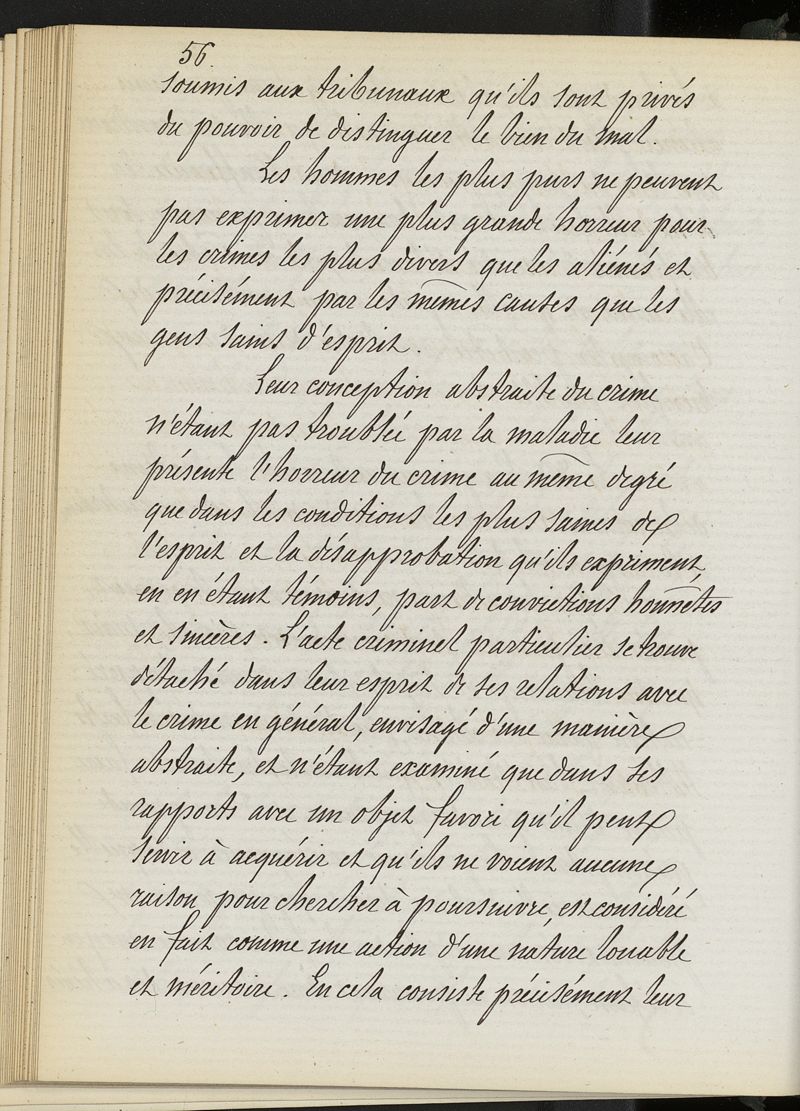 56
soumis aux tribunaux qu'ils sont privés
du pouvoir de distinguer le bien du mal.
Les hommes les plus purs ne peuvent
pas exprimer une plus grande horreur pour
les crimes les plus divers que les aliénés et
précisément par les mêmes causes que les
gens sains d'esprit.
Leur conception abstraite du crime
n'étant pas troublée par la maladie leur
présente l'horreur du crime au même degré
que dans les conditions les plus saines de
l'esprit et la désapprobation qu'ils expriment,
en en étant témoins, part de convictions honnêtes
et sincères. L'acte criminel particulier se trouve
détaché dans leur esprit de ses relations avec
le crime en général, envisagé d'une manière
abstraite, et n'étant examiné que dans ses
rapports avec un objet favori qu'il peut
servir à acquérir et qu'ils ne voient aucune
raison pour chercher à poursuivre, est considéré
en fait comme une action d'une nature louable
et méritoire. En cela consiste précisément leur